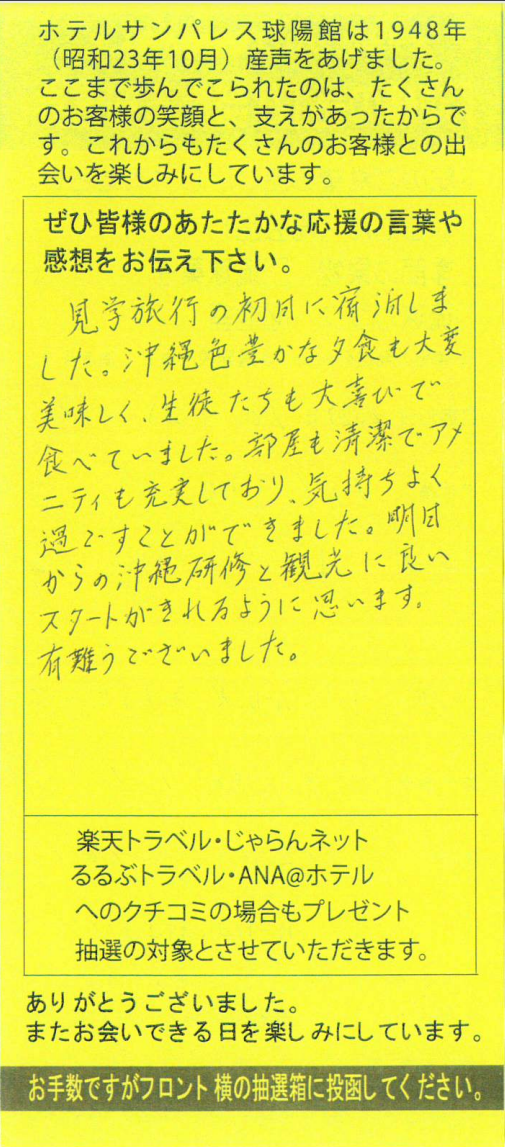 ホテルサンパレス球陽館は1948年
（昭和23年10月）産声をあげました。
ここまで歩んでこられたのは、たくさん
のお客様の笑顔と、支えがあったからで
す。これからもたくさんのお客様との出
会いを楽しみにしています。
ぜひ皆様のあたたかな応援の言葉や
感想をお伝え下さい。
見学旅行の初日に宿泊しま
した。沖縄色豊かな夕食も大変
美味しく、生徒たちも大喜びで
食べていました。部屋も清潔でアメ
ニティも充実しており、気持ちよく
過ごすことができました。明日
からの沖縄研修と観光に良い
スタートがきれるように思います。
有難うございました。
楽天トラベル・じゃらんネット
るるぶトラベル・ANA@ホテル
へのクチコミの場合もプレゼント
抽選の対象とさせていただきます。
ありがとうございました。
またお会いできる日を楽しみにしています。
お手数ですがフロント横の抽選箱に投函してください。